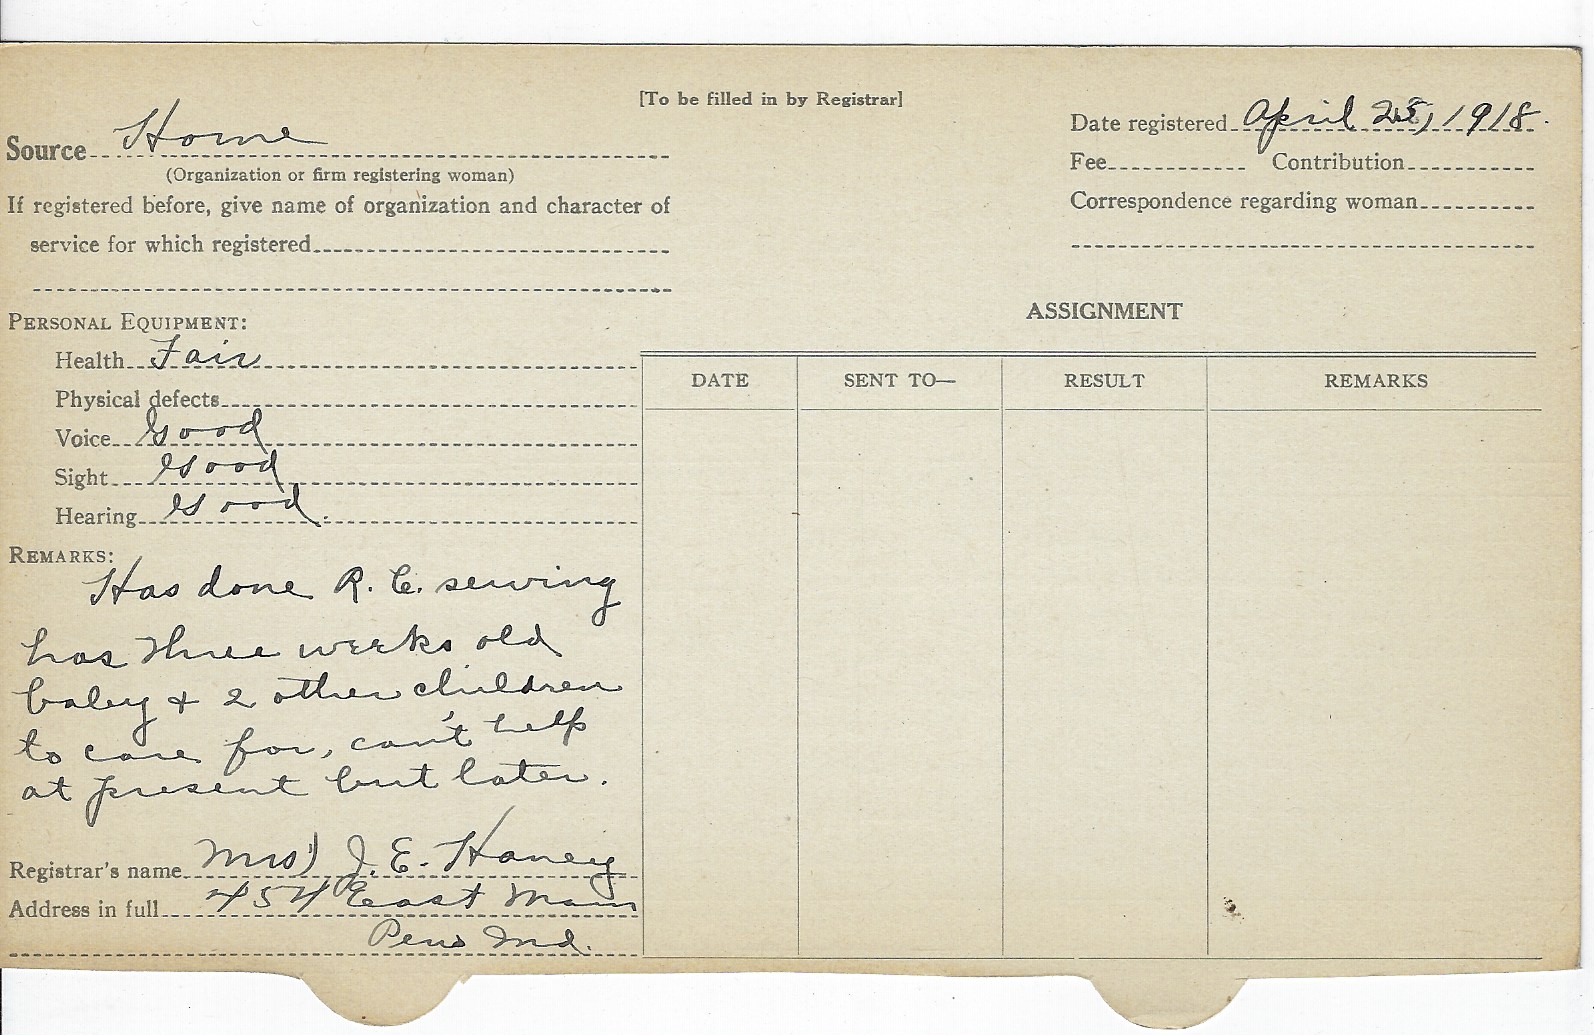 [To be filled in by Registrar]
Source Home
(Organization or firm registering woman)
If registered before, give name of organization and character of
service for which registered
Date registered April 1918.
Fee Contribution
Correspondence regarding woman
PERSONAL EQUIPMENT:
Health Fair
Physical defects
Voice Good
Sight Good
Hearing Good.
REMARKS:
Has done R. C. sewing
has three weeks old
baby + 2 other children
to care for, can't help
at present but later.
Registrar's name Mrs J. E. Haney
Address in full 454 East Main
Peru Ind.
ASSIGNMENT
DATE SENT TO— RESULT REMARKS